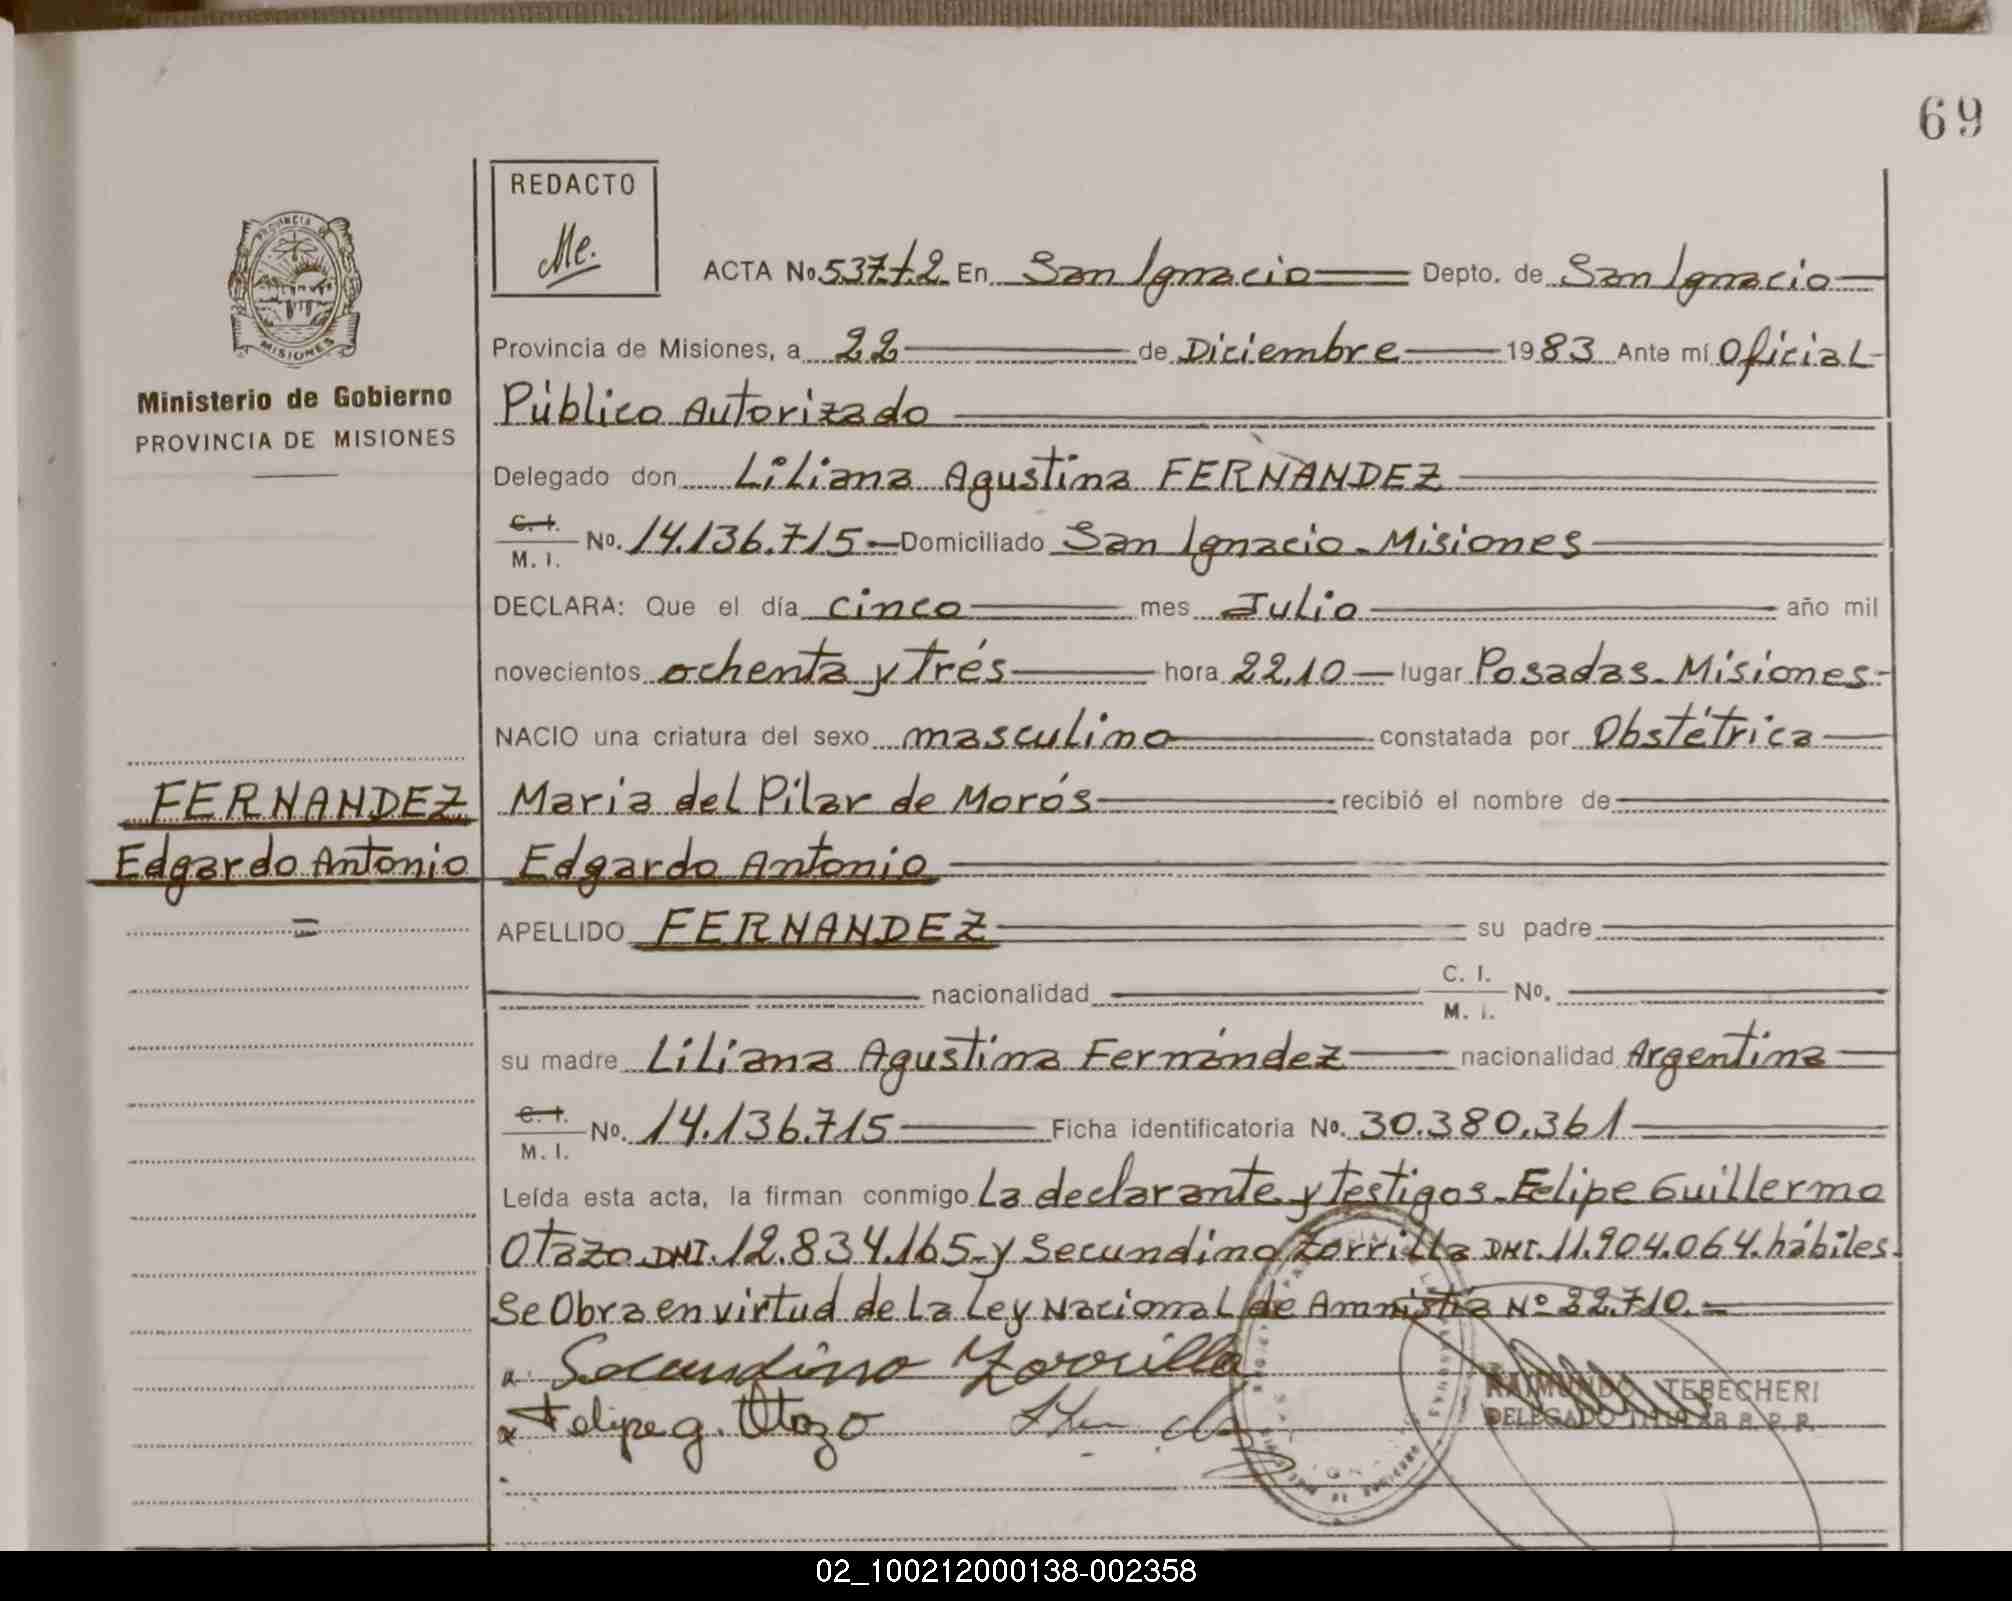 69
REDACTO
Me.
PROVINCIA
MISIONES
Ministerio de Gobierno
PROVINCIA DE MISIONES
ACTA No. 537.t.2 En San Ignacio Depto. de San Ignacio
Provincia de Misiones, a 22 de Diciembre 1983 Ante mí Oficial
Público Autorizado
Delegado don Liliana Agustina FERNÁNDEZ
C. I. / M. I. No. 14.136.715 Domiciliado San Ignacio - Misiones
DECLARA: Que el día cinco mes Julio año mil
novecientos ochenta y trés hora 22.10 lugar Posadas - Misiones
NACIO una criatura del sexo masculino constatada por Obstétrica
Maria del Pilar de Morós recibió el nombre de
Edgardo Antonio
APELLIDO FERNANDEZ su padre
nacionalidad C. I. / M. I. No.
su madre Liliana Agustina Fernández nacionalidad Argentina
C. I. / M. I. No. 14.136.715 Ficha identificatoria No. 30.380.361
Leída esta acta, la firman conmigo La declarante y testigos - Felipe Guillermo
Otazo DNI. 12.834.165 - y Secundino Zorrilla DNI. 11.904.064. hábiles.
Se Obra en virtud de La Ley Nacional de Amnistia Nº 22.710. =
FERNANDEZ
Edgardo Antonio
x Secundino Zorrilla
x Felipe g. Otazo
RAIMUNDO TEBECHERI
DELEGADO TITULAR R. P. P.
02_100212000138-002358